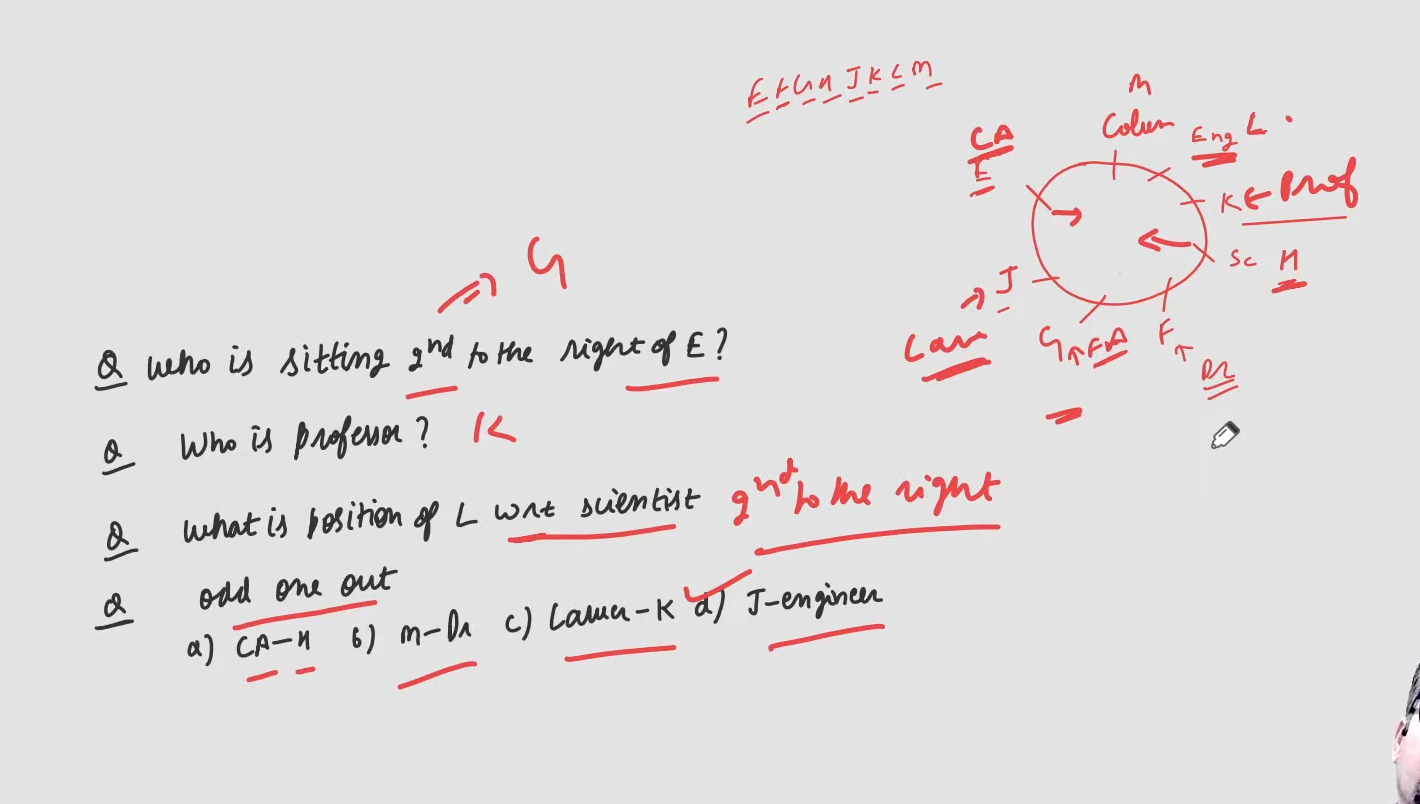 E F G H J K L M
M
Colum
CA
E
Eng L .
K ← Prof
Sc H
J
G
G FA
F
Dr
Q Who is sitting 2nd to the right of E?
Q Who is professor? K
Q What is position of L wrt scientist 2nd to the right
Q odd one out
a) CA-H b) M-Dr c) Lawer-K d) J-engineer